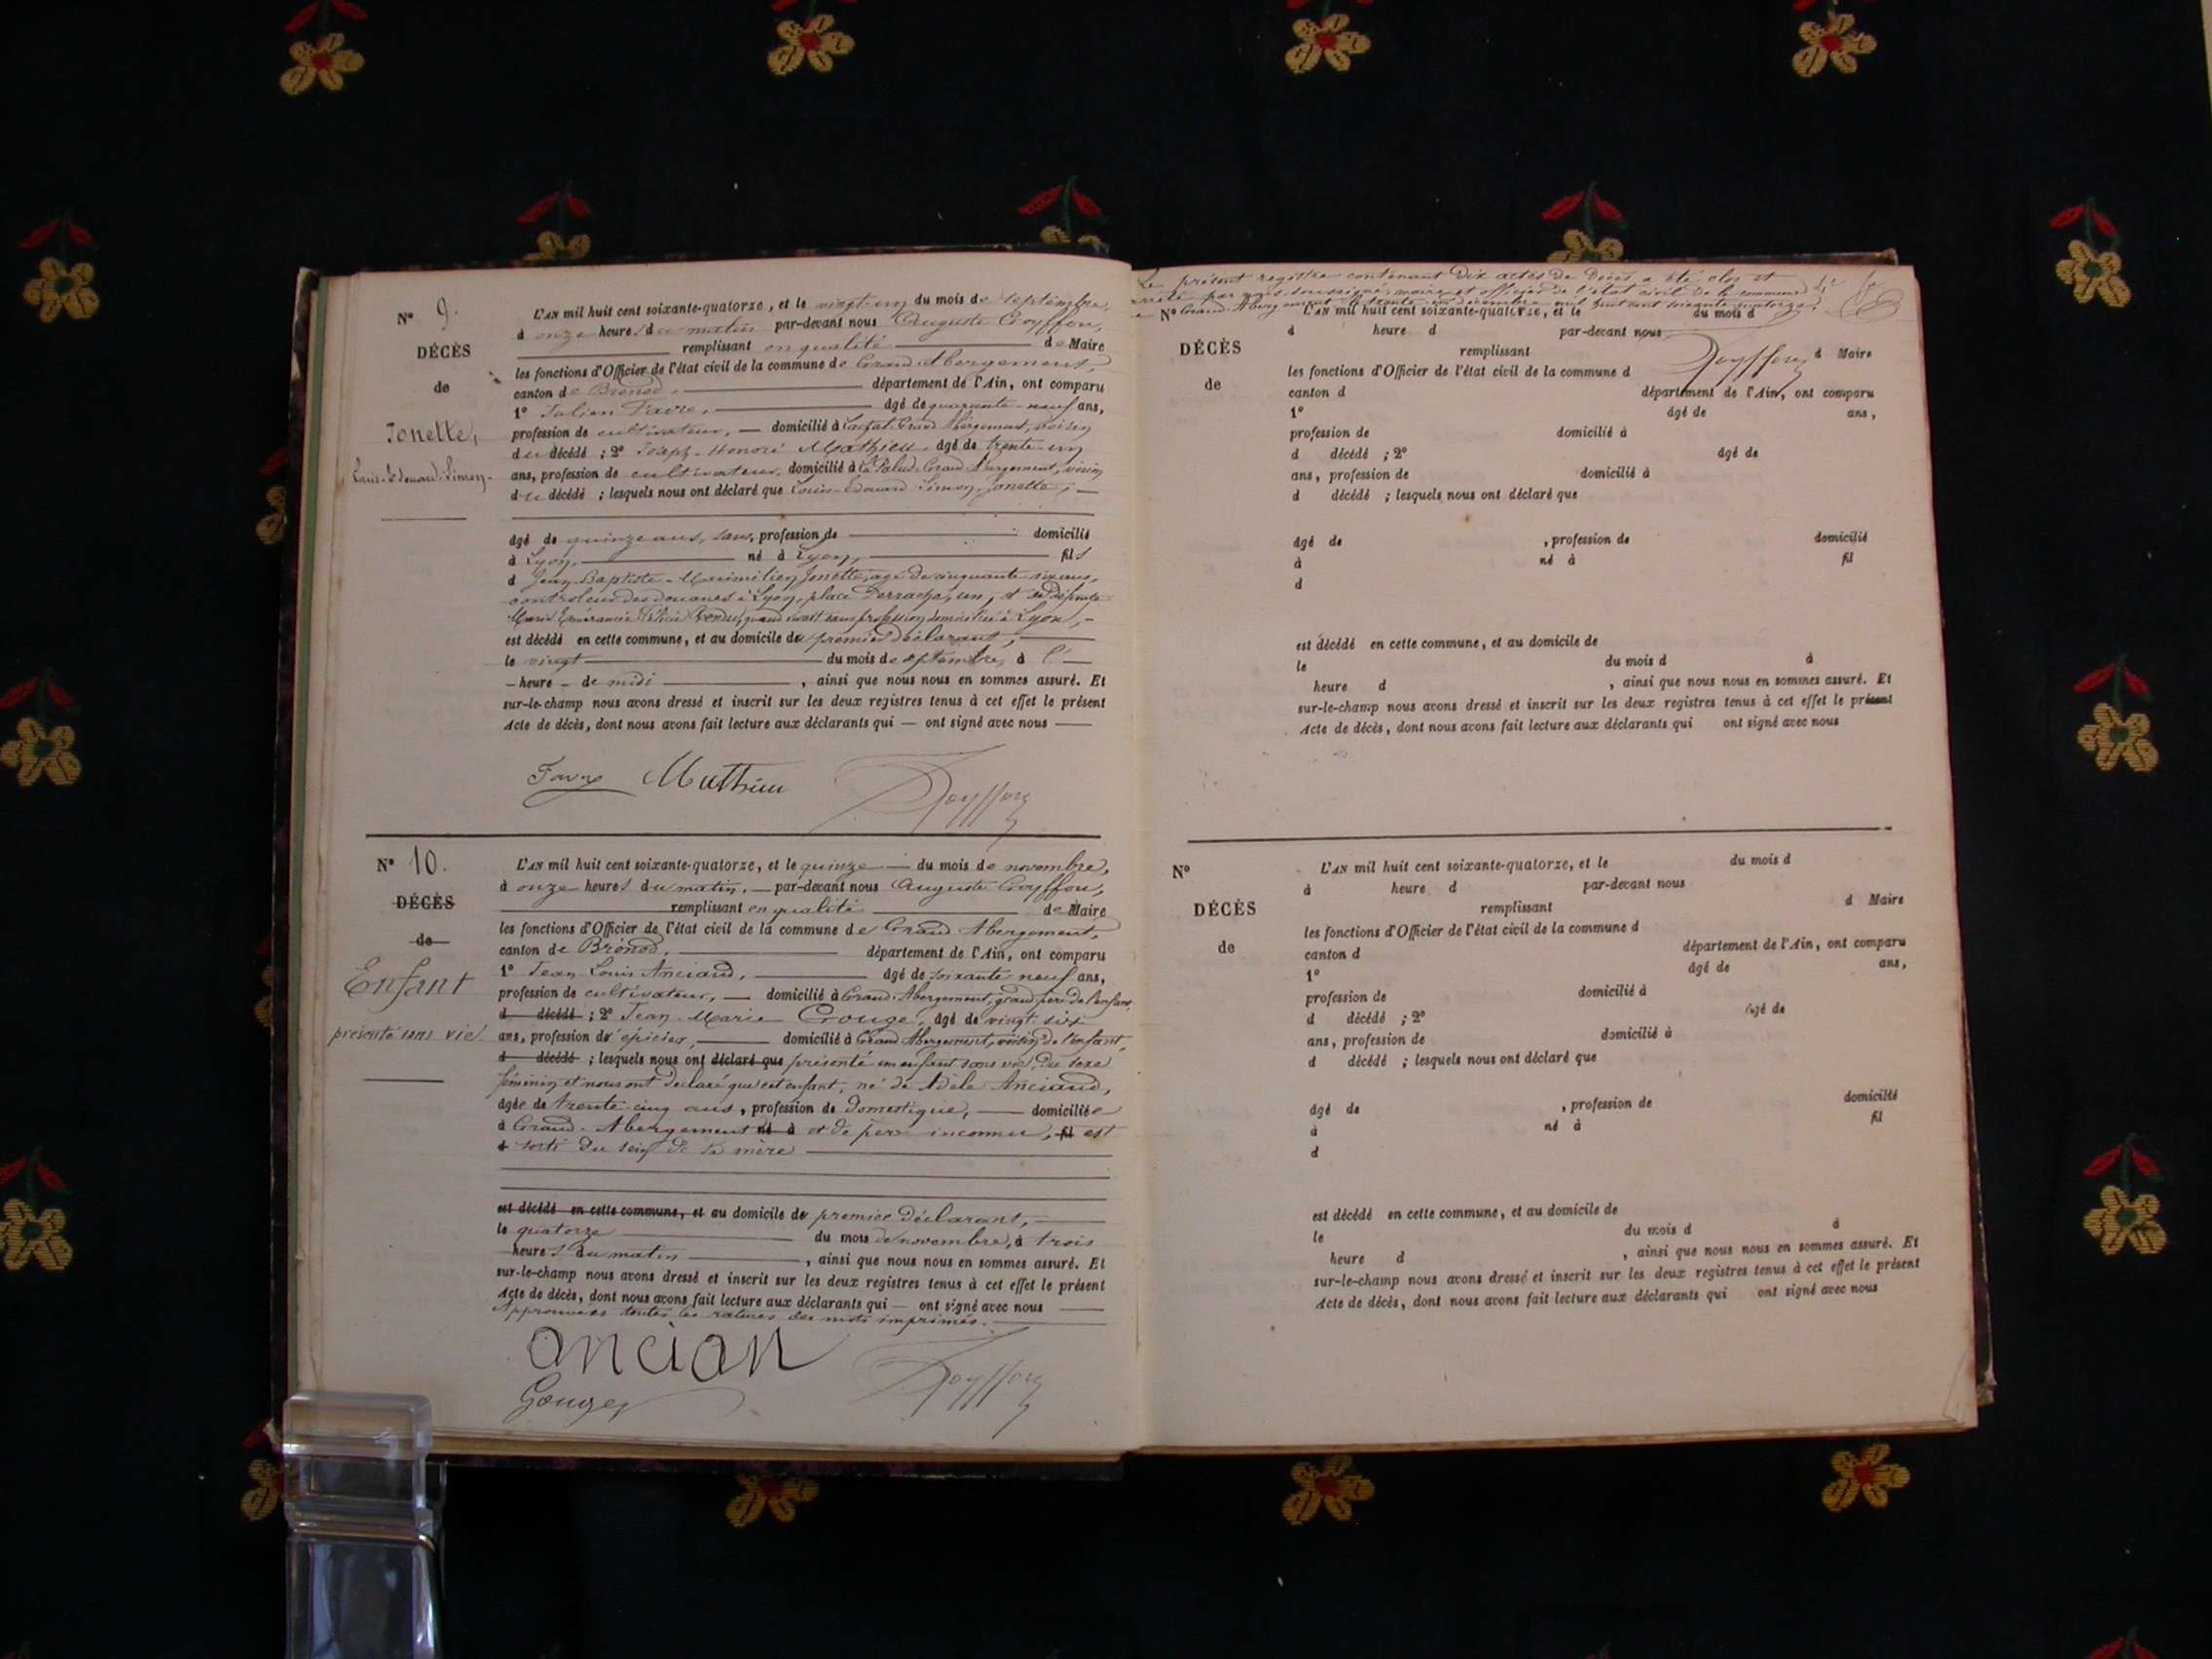 N° 9.
DÉCÈS
de
Jonette,
Louis-Edouard-Simon.
L'AN mil huit cent soixante-quatorze, et le vingt-un du mois de septembre,
à onze heures du matin par-devant nous Auguste
remplissant en qualité de Maire
les fonctions d'Officier de l'état civil de la commune de Grand Abergement,
canton de Brénod, département de l'Ain, ont comparu
1° Julien Favre, âgé de quarante-neuf ans,
profession de cultivateur, domicilié à Grand Abergement, voisin
du décédé ; 2° Joseph-Honoré Mathieu âgé de trente-un
ans, profession de cultivateur, domicilié à la Palud-Grand Abergement, voisin
du décédé ; lesquels nous ont déclaré que Louis-Edouard Simon Jonette,
âgé de quinze ans, sans profession de domicilié
à Lyon, né à Lyon, fils
d Jean-Baptiste-Maximilien Jonette, âgé de cinquante six ans,
controleur des douanes à Lyon, place Perrache, un, et de défunte
Marie Félicie quand vivait sans profession domiciliée à Lyon,
est décédé en cette commune, et au domicile du premier déclarant,
le vingt du mois de septembre, à l'
heure de midi , ainsi que nous nous en sommes assuré. Et
sur-le-champ nous avons dressé et inscrit sur les deux registres tenus à cet effet le présent
Acte de décès, dont nous avons fait lecture aux déclarants qui ont signé avec nous
Favre Mathieu
N° 10.
DÉCÈS
de
Enfant
présenté sans vie.
L'AN mil huit cent soixante-quatorze, et le quinze du mois de novembre,
à onze heures du matin, par-devant nous Auguste
remplissant en qualité de Maire
les fonctions d'Officier de l'état civil de la commune de Grand Abergement,
canton de Brénod, département de l'Ain, ont comparu
1° Jean Louis Anciand, âgé de soixante neuf ans,
profession de cultivateur, domicilié à Grand-Abergement, grand père de l'enfant
d décédé ; 2° Jean-Marie Gouge, âgé de vingt-six
ans, profession d'épicier, domicilié à Grand Abergement, voisin de l'enfant,
d décédé ; lesquels nous ont déclaré que présenté un enfant sans vie, du sexe
féminin et nous ont déclaré que cet enfant, né de Adèle Anciand,
âgée de trente-cinq ans, profession de domestique, domiciliée
à Grand-Abergement né à et de père inconnu, fil est
d sorti du sein de sa mère
est décédé en cette commune, et au domicile du premier déclarant,
le quatorze du mois de novembre, à trois
heures du matin , ainsi que nous nous en sommes assuré. Et
sur-le-champ nous avons dressé et inscrit sur les deux registres tenus à cet effet le présent
Acte de décès, dont nous avons fait lecture aux déclarants qui ont signé avec nous
Approuvées toutes les ratures des mots imprimés.
ancian
Gouge
Le présent registre contenant dix actes de décès a été clos et
arrêté par nous, soussigné, maire et officier de l'état civil de la commune
de Grand Abergement le trente-un décembre mil huit cent soixante quatorze.
N°
DÉCÈS
de
L'AN mil huit cent soixante-quatorze, et le du mois d
à heure d par-devant nous
remplissant d Maire
les fonctions d'Officier de l'état civil de la commune d
canton d département de l'Ain, ont comparu
1° âgé de ans,
profession de domicilié à
d décédé ; 2° âgé de
ans, profession de domicilié à
d décédé ; lesquels nous ont déclaré que
âgé de , profession de domicilié
à né à fil
d
est décédé en cette commune, et au domicile de
le du mois d à
heure d , ainsi que nous nous en sommes assuré. Et
sur-le-champ nous avons dressé et inscrit sur les deux registres tenus à cet effet le présent
Acte de décès, dont nous avons fait lecture aux déclarants qui ont signé avec nous
N°
DÉCÈS
de
L'AN mil huit cent soixante-quatorze, et le du mois d
à heure d par-devant nous
remplissant d Maire
les fonctions d'Officier de l'état civil de la commune d
canton d département de l'Ain, ont comparu
1° âgé de ans,
profession de domicilié à
d décédé ; 2° âgé de
ans, profession de domicilié à
d décédé ; lesquels nous ont déclaré que
âgé de , profession de domicilié
à né à fil
d
est décédé en cette commune, et au domicile de
le du mois d à
heure d , ainsi que nous nous en sommes assuré. Et
sur-le-champ nous avons dressé et inscrit sur les deux registres tenus à cet effet le présent
Acte de décès, dont nous avons fait lecture aux déclarants qui ont signé avec nous